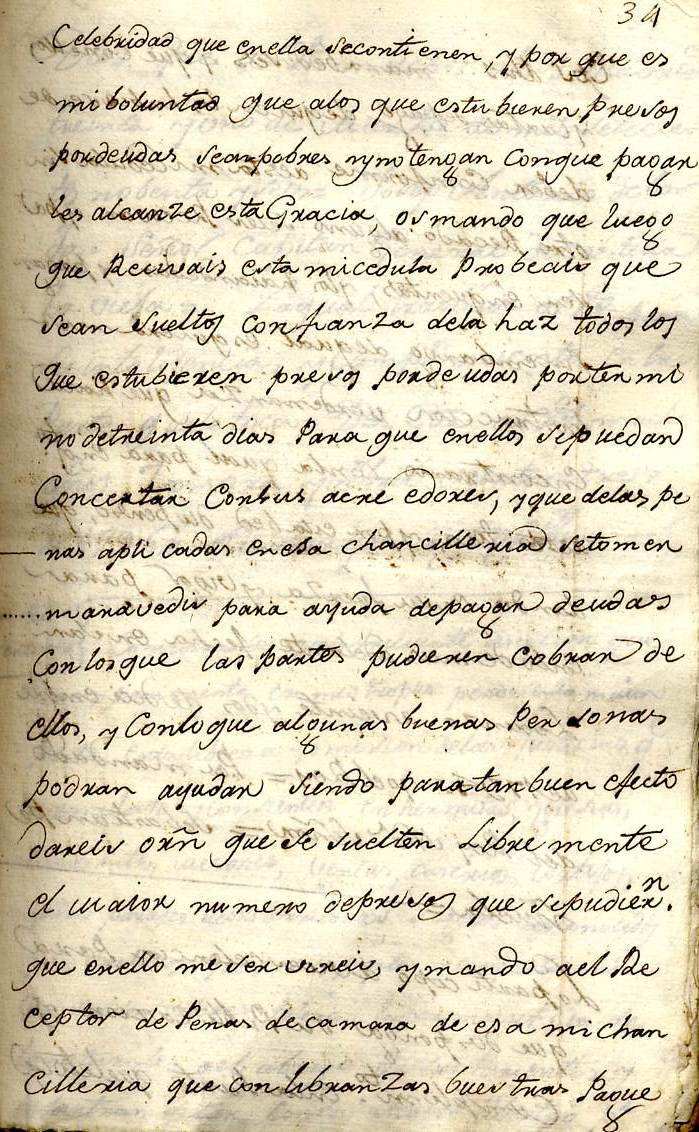 34
Celebridad que enella secontienen, y por que es
mi boluntad que alos que estubieren presos
pordeudas sean pobres, y no tengan conque pagar
les alcanze esta Gracia, os mando que luego
que Recivais esta mi cedula Probeais que
sean sueltos confianza dela haz todos los
que estubieren presos pordeudas portermi
no detreinta dias Para que enellos sepuedan
Concertar Consus acre edores, y que delas pe
nas apli cadas enesa chancilleria setomen
maravedis para ayuda depagar deudas
Conlosque las partes pudieren cobrar de
ellos, y Conloque algunas buenas Personas
podran ayudar siendo paratan buen efecto
dareis orñ que se suelten Libre mente
el maior numero depresos que sepudiern.
que enello me servireis, y mando ael Re
ceptor de Penas de camara de esa mi chan
cilleria que con libranzas buestras Pague